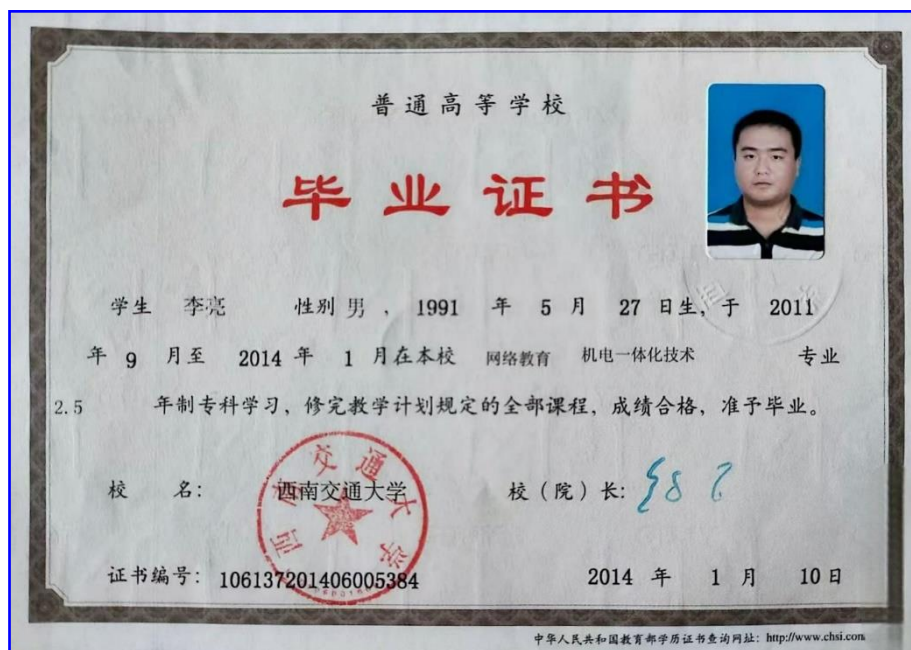 普通高等学校
毕业证书
学生 李亮 性别 男 ， 1991 年 5 月 27 日生，于 2011
年 9 月至 2014 年 1 月在本校 网络教育 机电一体化技术 专业
2.5 年制专科学习，修完教学计划规定的全部课程，成绩合格，准予毕业。
校 名： 西南交通大学 校（院）长：
西南交通大学
证书编号： 106137201406005384 2014 年 1 月 10 日
中华人民共和国教育部学历证书查询网址：http://www.chsi.com